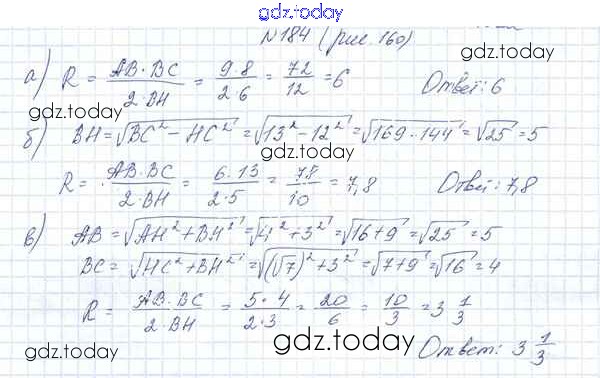 gdz.today
N 184 (рис. 160)
gdz.today
а) R = AB·BC / 2·BH = 9·8 / 2·6 = 72/12 = 6 Ответ: 6
gdz.today
gdz.today
б) BH = √BC² − HC² = √13² − 12² = √169 − 144 = √25 = 5
R = AB·BC / 2·BH = 6·13 / 2·5 = 78/10 = 7,8 Ответ: 7,8
gdz.today
в) AB = √AH² + BH² = √4² + 3² = √16 + 9 = √25 = 5
BC = √HC² + BH² = √(√7)² + 3² = √7 + 9 = √16 = 4
R = AB·BC / 2·BH = 5·4 / 2·3 = 20/6 = 10/3 = 3 1/3
gdz.today
gdz.today
Ответ: 3 1/3